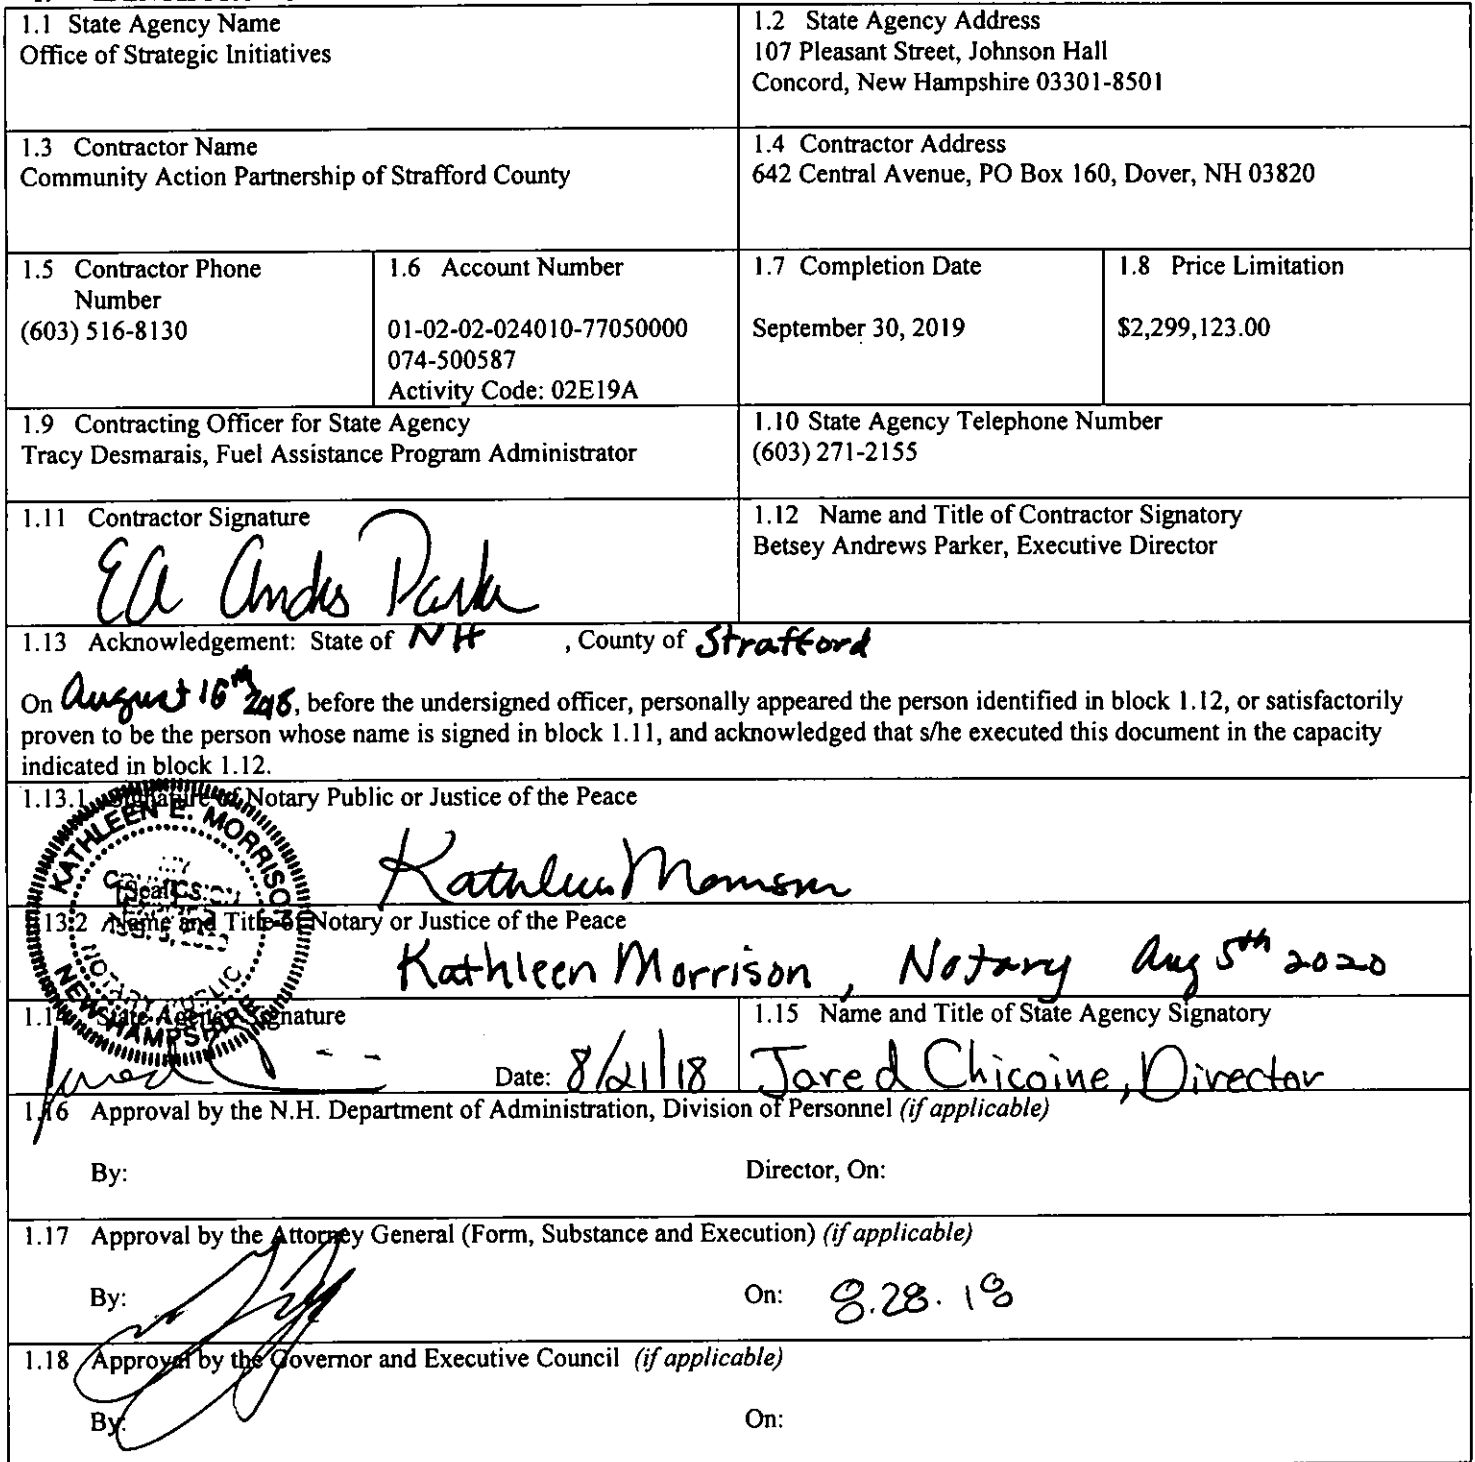 1.1 State Agency Name
Office of Strategic Initiatives
1.2 State Agency Address
107 Pleasant Street, Johnson Hall
Concord, New Hampshire 03301-8501
1.3 Contractor Name
Community Action Partnership of Strafford County
1.4 Contractor Address
642 Central Avenue, PO Box 160, Dover, NH 03820
1.5 Contractor Phone
Number
(603) 516-8130
1.6 Account Number
01-02-02-024010-77050000
074-500587
Activity Code: 02E19A
1.7 Completion Date
September 30, 2019
1.8 Price Limitation
$2,299,123.00
1.9 Contracting Officer for State Agency
Tracy Desmarais, Fuel Assistance Program Administrator
1.10 State Agency Telephone Number
(603) 271-2155
1.11 Contractor Signature
1.12 Name and Title of Contractor Signatory
Betsey Andrews Parker, Executive Director
1.13 Acknowledgement: State of NH , County of Strafford
On August , before the undersigned officer, personally appeared the person identified in block 1.12, or satisfactorily
proven to be the person whose name is signed in block 1.11, and acknowledged that s/he executed this document in the capacity
indicated in block 1.12.
1.13.1 Signature of Notary Public or Justice of the Peace
KATHLEEN E. MORRISON
NOTARY PUBLIC
NEW HAMPSHIRE
[Seal]
Kathleen Morrison
1.13.2 Name and Title of Notary or Justice of the Peace
Kathleen Morrison, Notary Aug 5th 2020
1.14 State Agency Signature
Date: 8/21/18
1.15 Name and Title of State Agency Signatory
Jared Chicoine, Director
1.16 Approval by the N.H. Department of Administration, Division of Personnel (if applicable)
By:
Director, On:
1.17 Approval by the Attorney General (Form, Substance and Execution) (if applicable)
By:
On: 8.28.18
1.18 Approval by the Governor and Executive Council (if applicable)
By:
On: